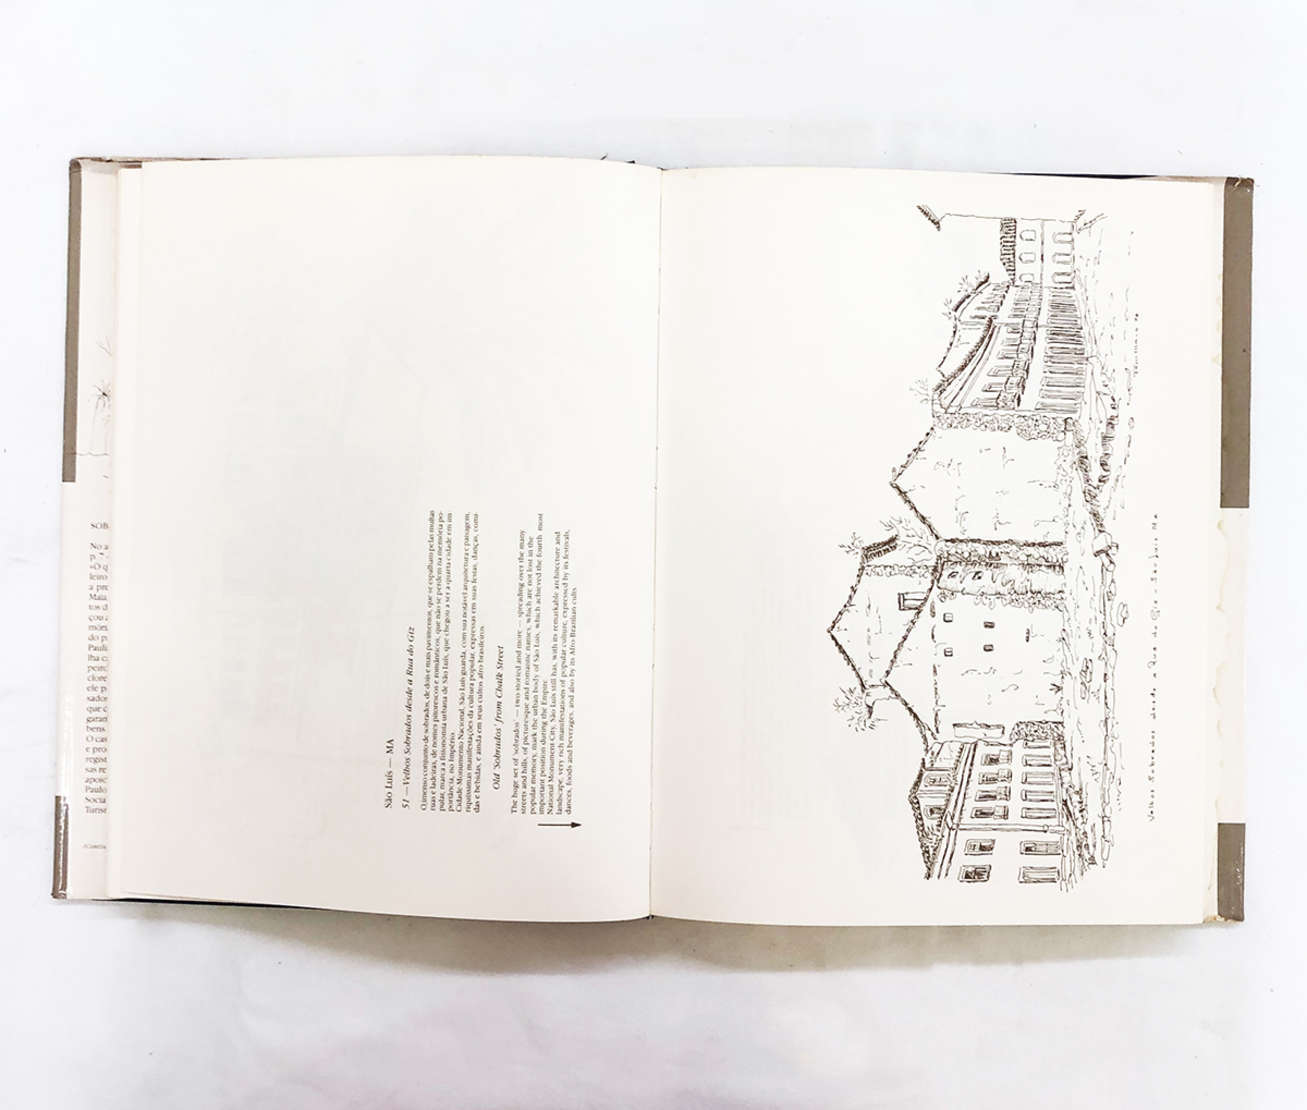 São Luís — MA
51 — Velhos Sobrados desde a Rua do Giz
O imenso conjunto de sobrados, de dois e mais pavimentos, que se espalham pelas muitas
ruas e ladeiras, de nomes pitorescos e românticos, que não se perdem na memória po-
pular, marca a fisionomia urbana de São Luís, que chegou a ser a quarta cidade em im
portância, no Império.
Cidade Monumento Nacional, São Luís guarda, com sua notável arquitetura e paisagem,
riquíssimas manifestações da cultura popular, expressas em suas festas, danças, comi-
das e bebidas, e ainda em seus cultos afro brasileiros.
Old 'Sobrados' from Chalk Street
The huge set of 'sobrados' — two storied and more — spreading over the many
streets and hills, of picturesque and romantic names, which are not lost in the
popular memory, mark the urban body of São Luís, which achieved the fourth most
important position during the Empire.
National Monument City, São Luís still has, with its remarkable architecture and
landscape, very rich manifestations of popular culture, expressed by its festivals,
dances, foods and beverages, and also by its Afro-Brasilian cults
Velhos Sobrados desde a Rua do Giz - São Luís Ma
SOB
No a
«O q
leiro
a pro
Maia
tos d
çou a
món
do p
Pauli
ilha c
peiro
clore
ele p
sador
que c
garan
bens
O cas
e pro
regist
sas re
apose
Paulo
Social
Turis